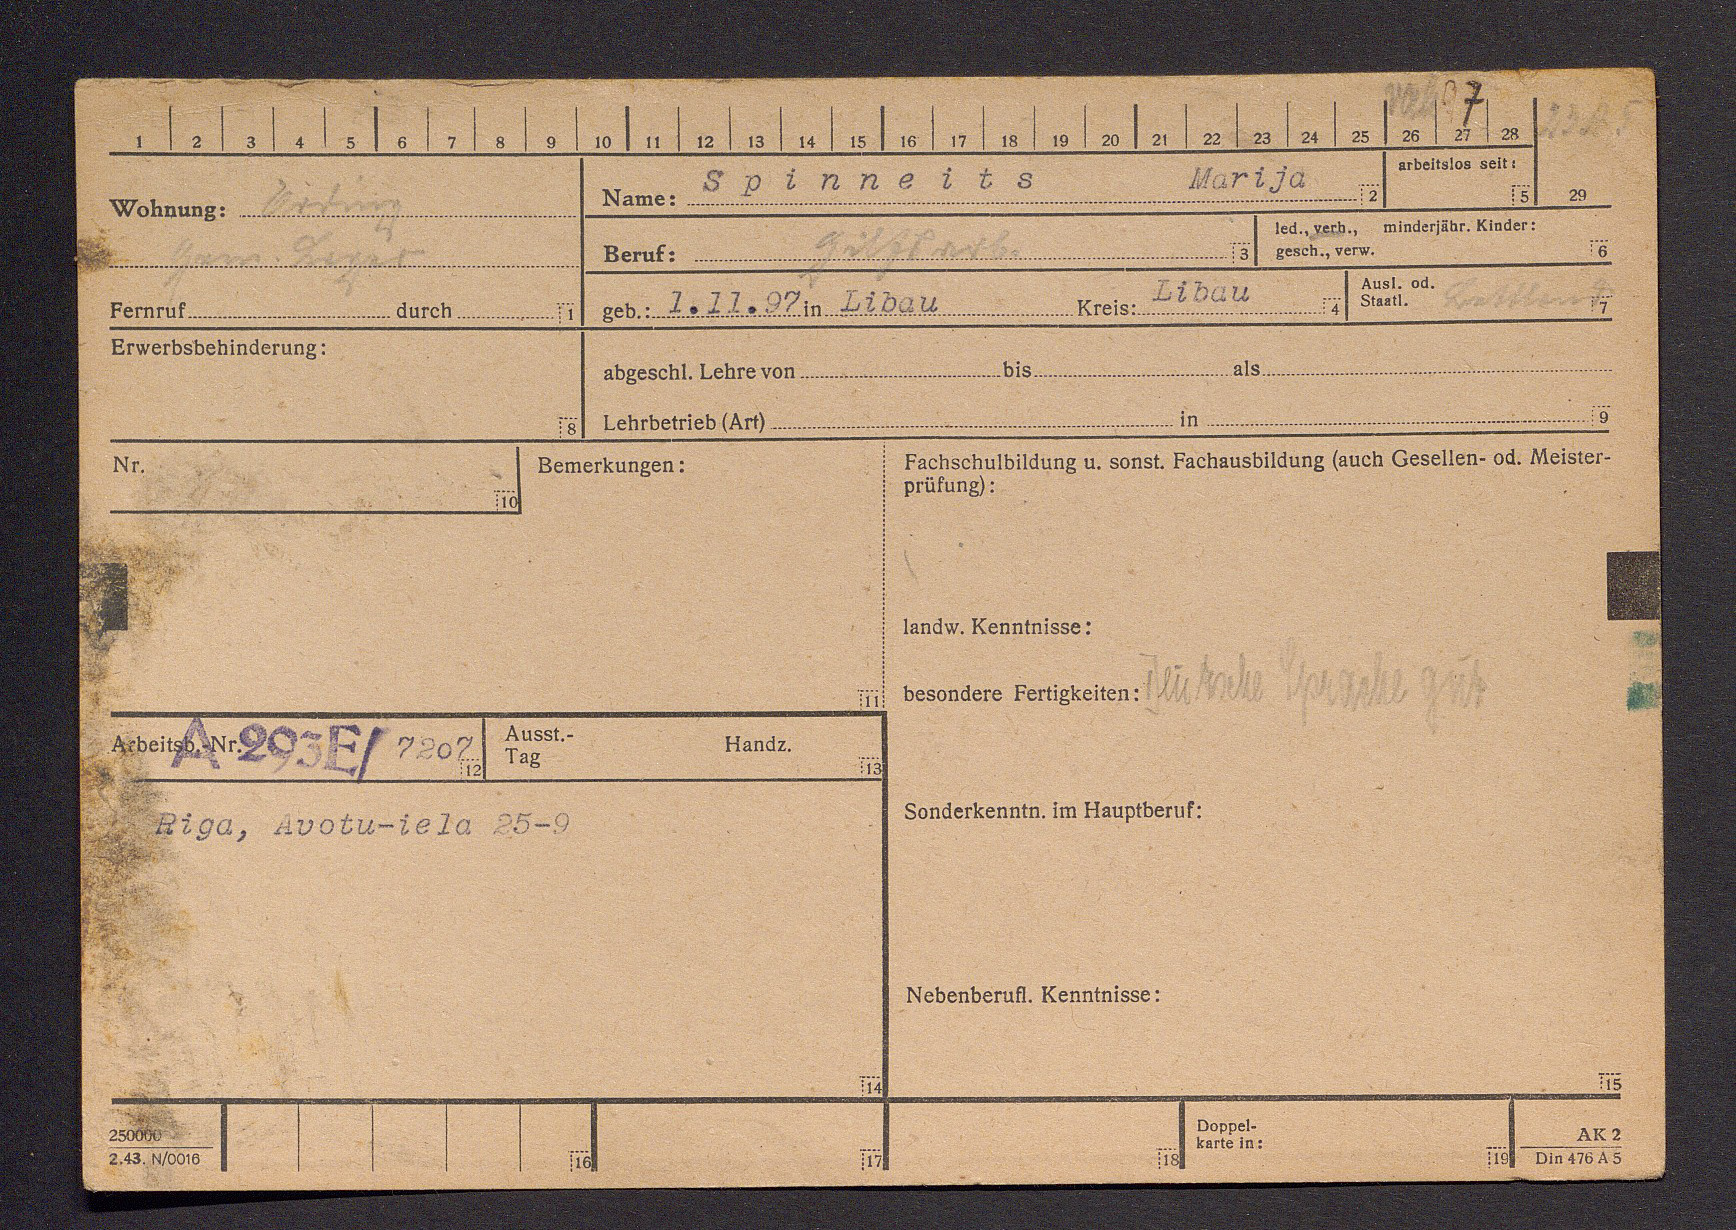 7
1 2 3 4 5 6 7 8 9 10 11 12 13 14 15 16 17 18 19 20 21 22 23 24 25 26 27 28
29
Wohnung:
Name: Spinneits Marija 2
arbeitslos seit: 5
Beruf: Hilfsarb. 3
led., verh., minderjähr. Kinder:
gesch., verw. 6
Fernruf durch 1
geb.: 1.11.97 in Libau Kreis: Libau 4
Ausl. od.
Staatl. Lettland 7
Erwerbsbehinderung: 8
abgeschl. Lehre von bis als
Lehrbetrieb (Art) in 9
Nr. 10
Bemerkungen: 11
Fachschulbildung u. sonst. Fachausbildung (auch Gesellen- od. Meister-
prüfung):
landw. Kenntnisse:
besondere Fertigkeiten: Deutsche Sprache gut
Arbeitsb.-Nr. A 293E/ 7207 12
Ausst.-
Tag Handz. 13
Riga, Avotu-iela 25-9
14
Sonderkenntn. im Hauptberuf:
Nebenberufl. Kenntnisse:
15
250000
2.43. N/0016
16 17 18
Doppel-
karte in: 19
AK 2
Din 476 A 5